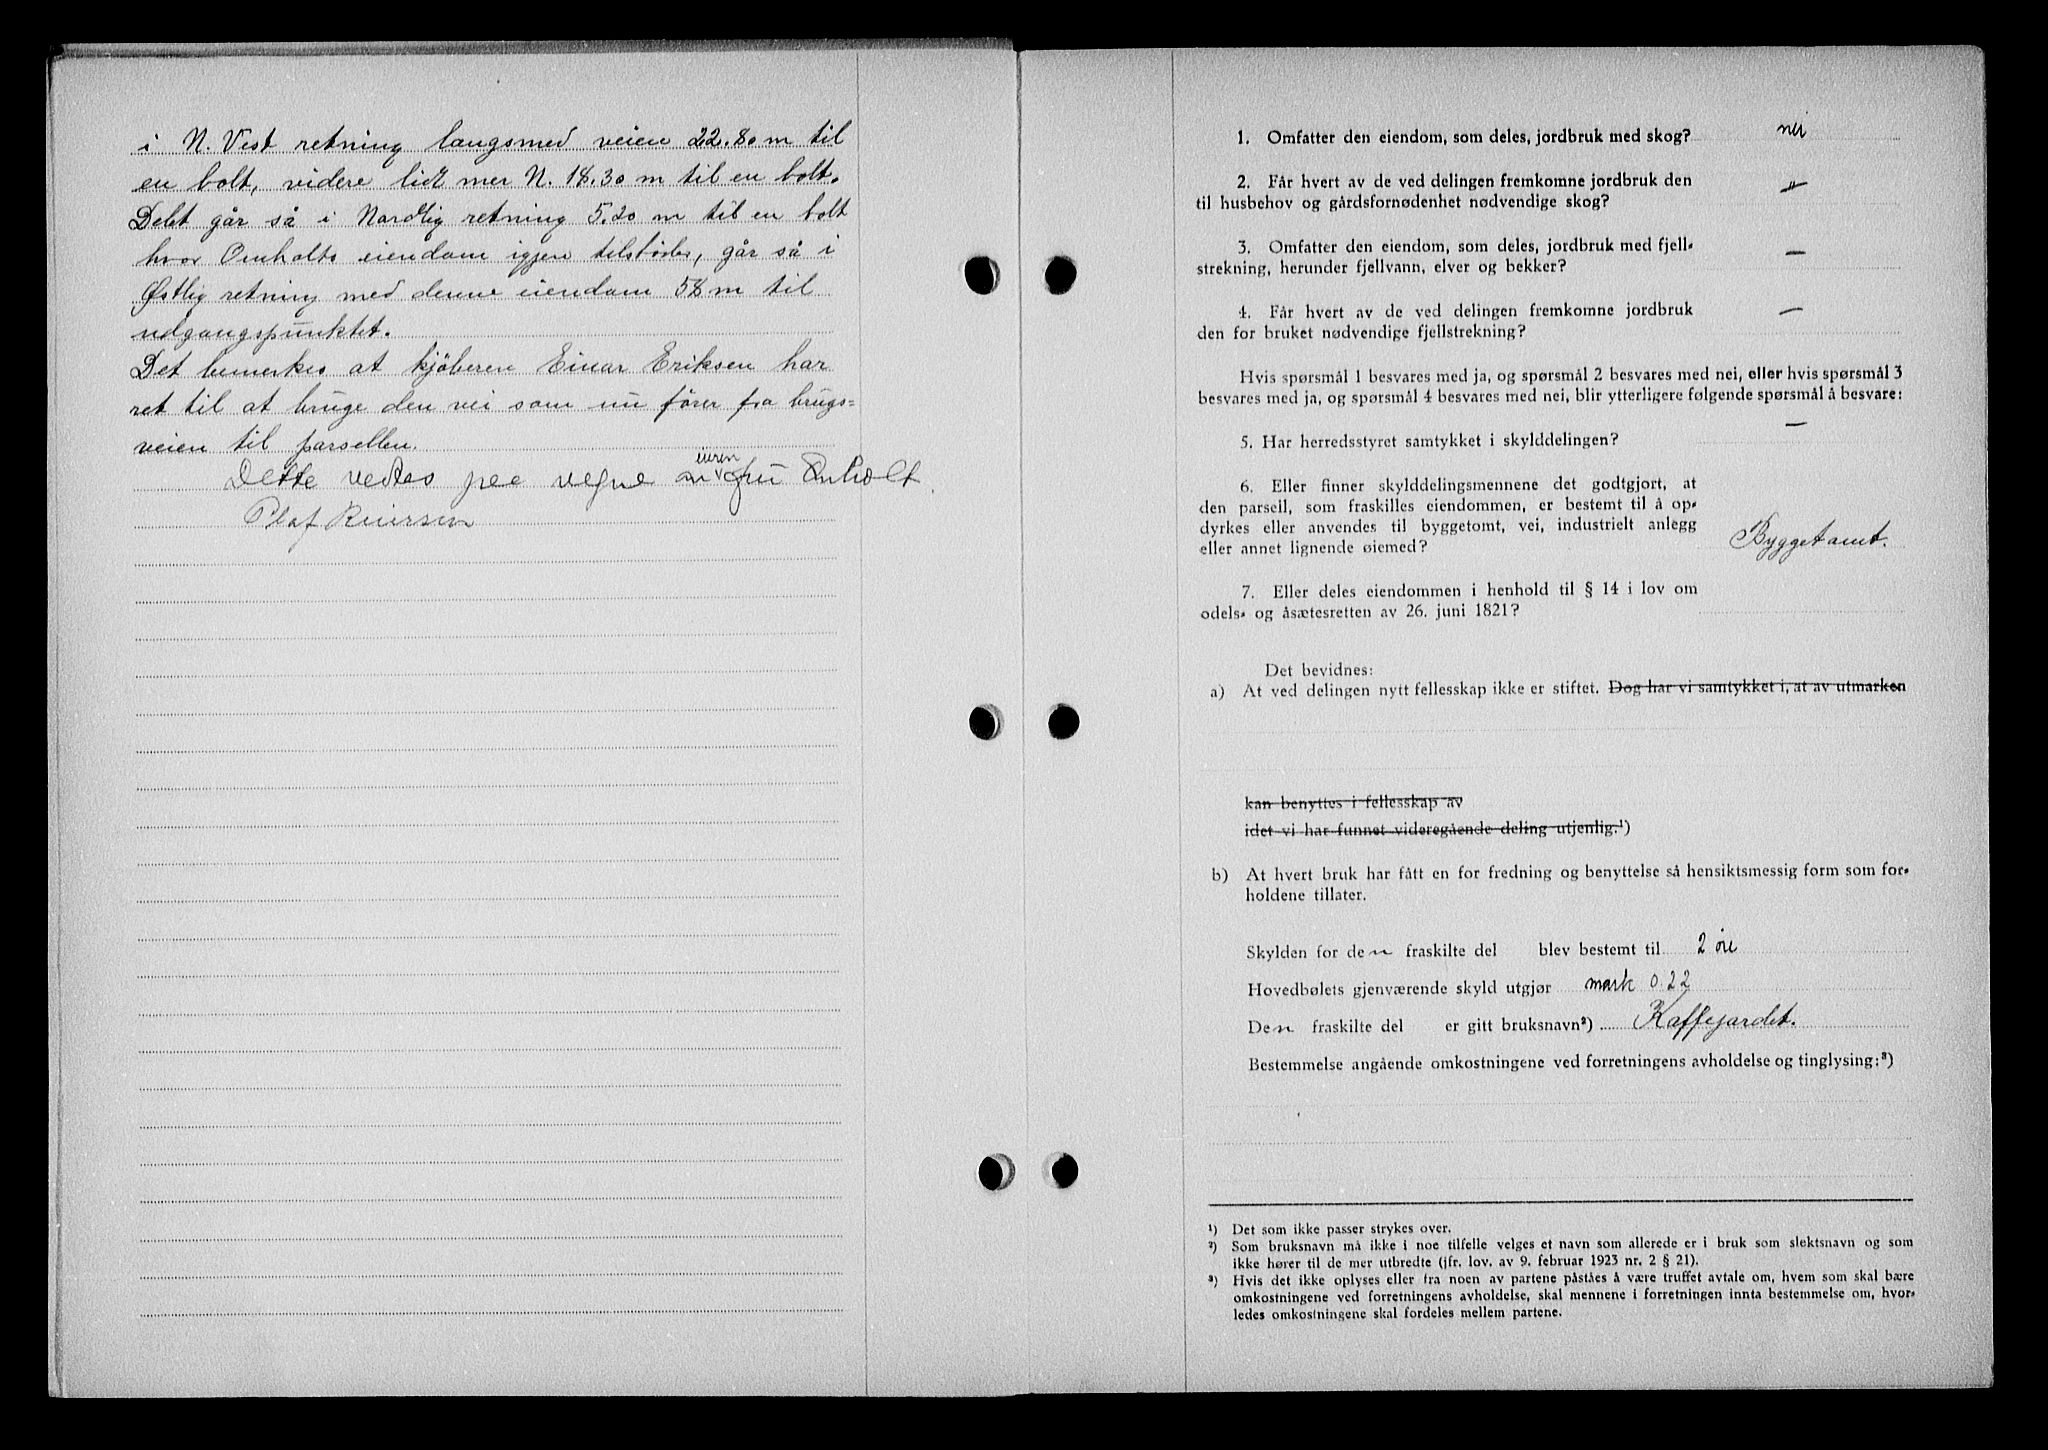 i N. Vest retning langsmed veien 22.80 m til
en bolt, videre lidt mer N. 18.30 m til en bolt.
Delet går så i Nordlig retning 5.20 m til en bolt
hvor Omholts eiendom igjen tilstödes, går så i
Østlig retning med denne eiendom 58 m til
udgangspunktet.
Det bemerkes at kjöberen Einar Eriksen har
ret til at bruge den vei som nu förer fra brugs-
veien til parsellen.
eieren
Dette vedtas paa vegne av fru Omholt
Olaf Reiersen
1. Omfatter den eiendom, som deles, jordbruk med skog? nei
2. Får hvert av de ved delingen fremkomne jordbruk den
til husbehov og gårdsfornødenhet nødvendige skog? "
3. Omfatter den eiendom, som deles, jordbruk med fjell-
strekning, herunder fjellvann, elver og bekker? —
4. Får hvert av de ved delingen fremkomne jordbruk
den for bruket nødvendige fjellstrekning? —
Hvis spørsmål 1 besvares med ja, og spørsmål 2 besvares med nei, eller hvis spørsmål 3
besvares med ja, og spørsmål 4 besvares med nei, blir ytterligere følgende spørsmål å besvare:
5. Har herredsstyret samtykket i skylddelingen? —
6. Eller finner skylddelingsmennene det godtgjort, at
den parsell, som fraskilles eiendommen, er bestemt til å op-
dyrkes eller anvendes til byggetomt, vei, industrielt anlegg
eller annet lignende øiemed? Byggetomt.
7. Eller deles eiendommen i henhold til § 14 i lov om
odels- og åsætesretten av 26. juni 1821?
Det bevidnes:
a) At ved delingen nytt fellesskap ikke er stiftet. Dog har vi samtykket i, at av utmarken
kan benyttes i fellesskap av
idet vi har funnet videregående deling utjenlig.¹)
b) At hvert bruk har fått en for fredning og benyttelse så hensiktsmessig form som for-
holdene tillater.
Skylden for den fraskilte del blev bestemt til 2 öre
Hovedbølets gjenværende skyld utgjør mark 0.22
Den fraskilte del er gitt bruksnavn²) Kaffejordet.
Bestemmelse angående omkostningene ved forretningens avholdelse og tinglysing:³)
¹) Det som ikke passer strykes over.
²) Som bruksnavn må ikke i noe tilfelle velges et navn som allerede er i bruk som slektsnavn og som
ikke hører til de mer utbredte (jfr. lov. av 9. februar 1923 nr. 2 § 21).
³) Hvis det ikke oplyses eller fra noen av partene påståes å være truffet avtale om, hvem som skal bære
omkostningene ved forretningens avholdelse, skal mennene i forretningen innta bestemmelse om, hvor-
ledes omkostningene skal fordeles mellem partene.